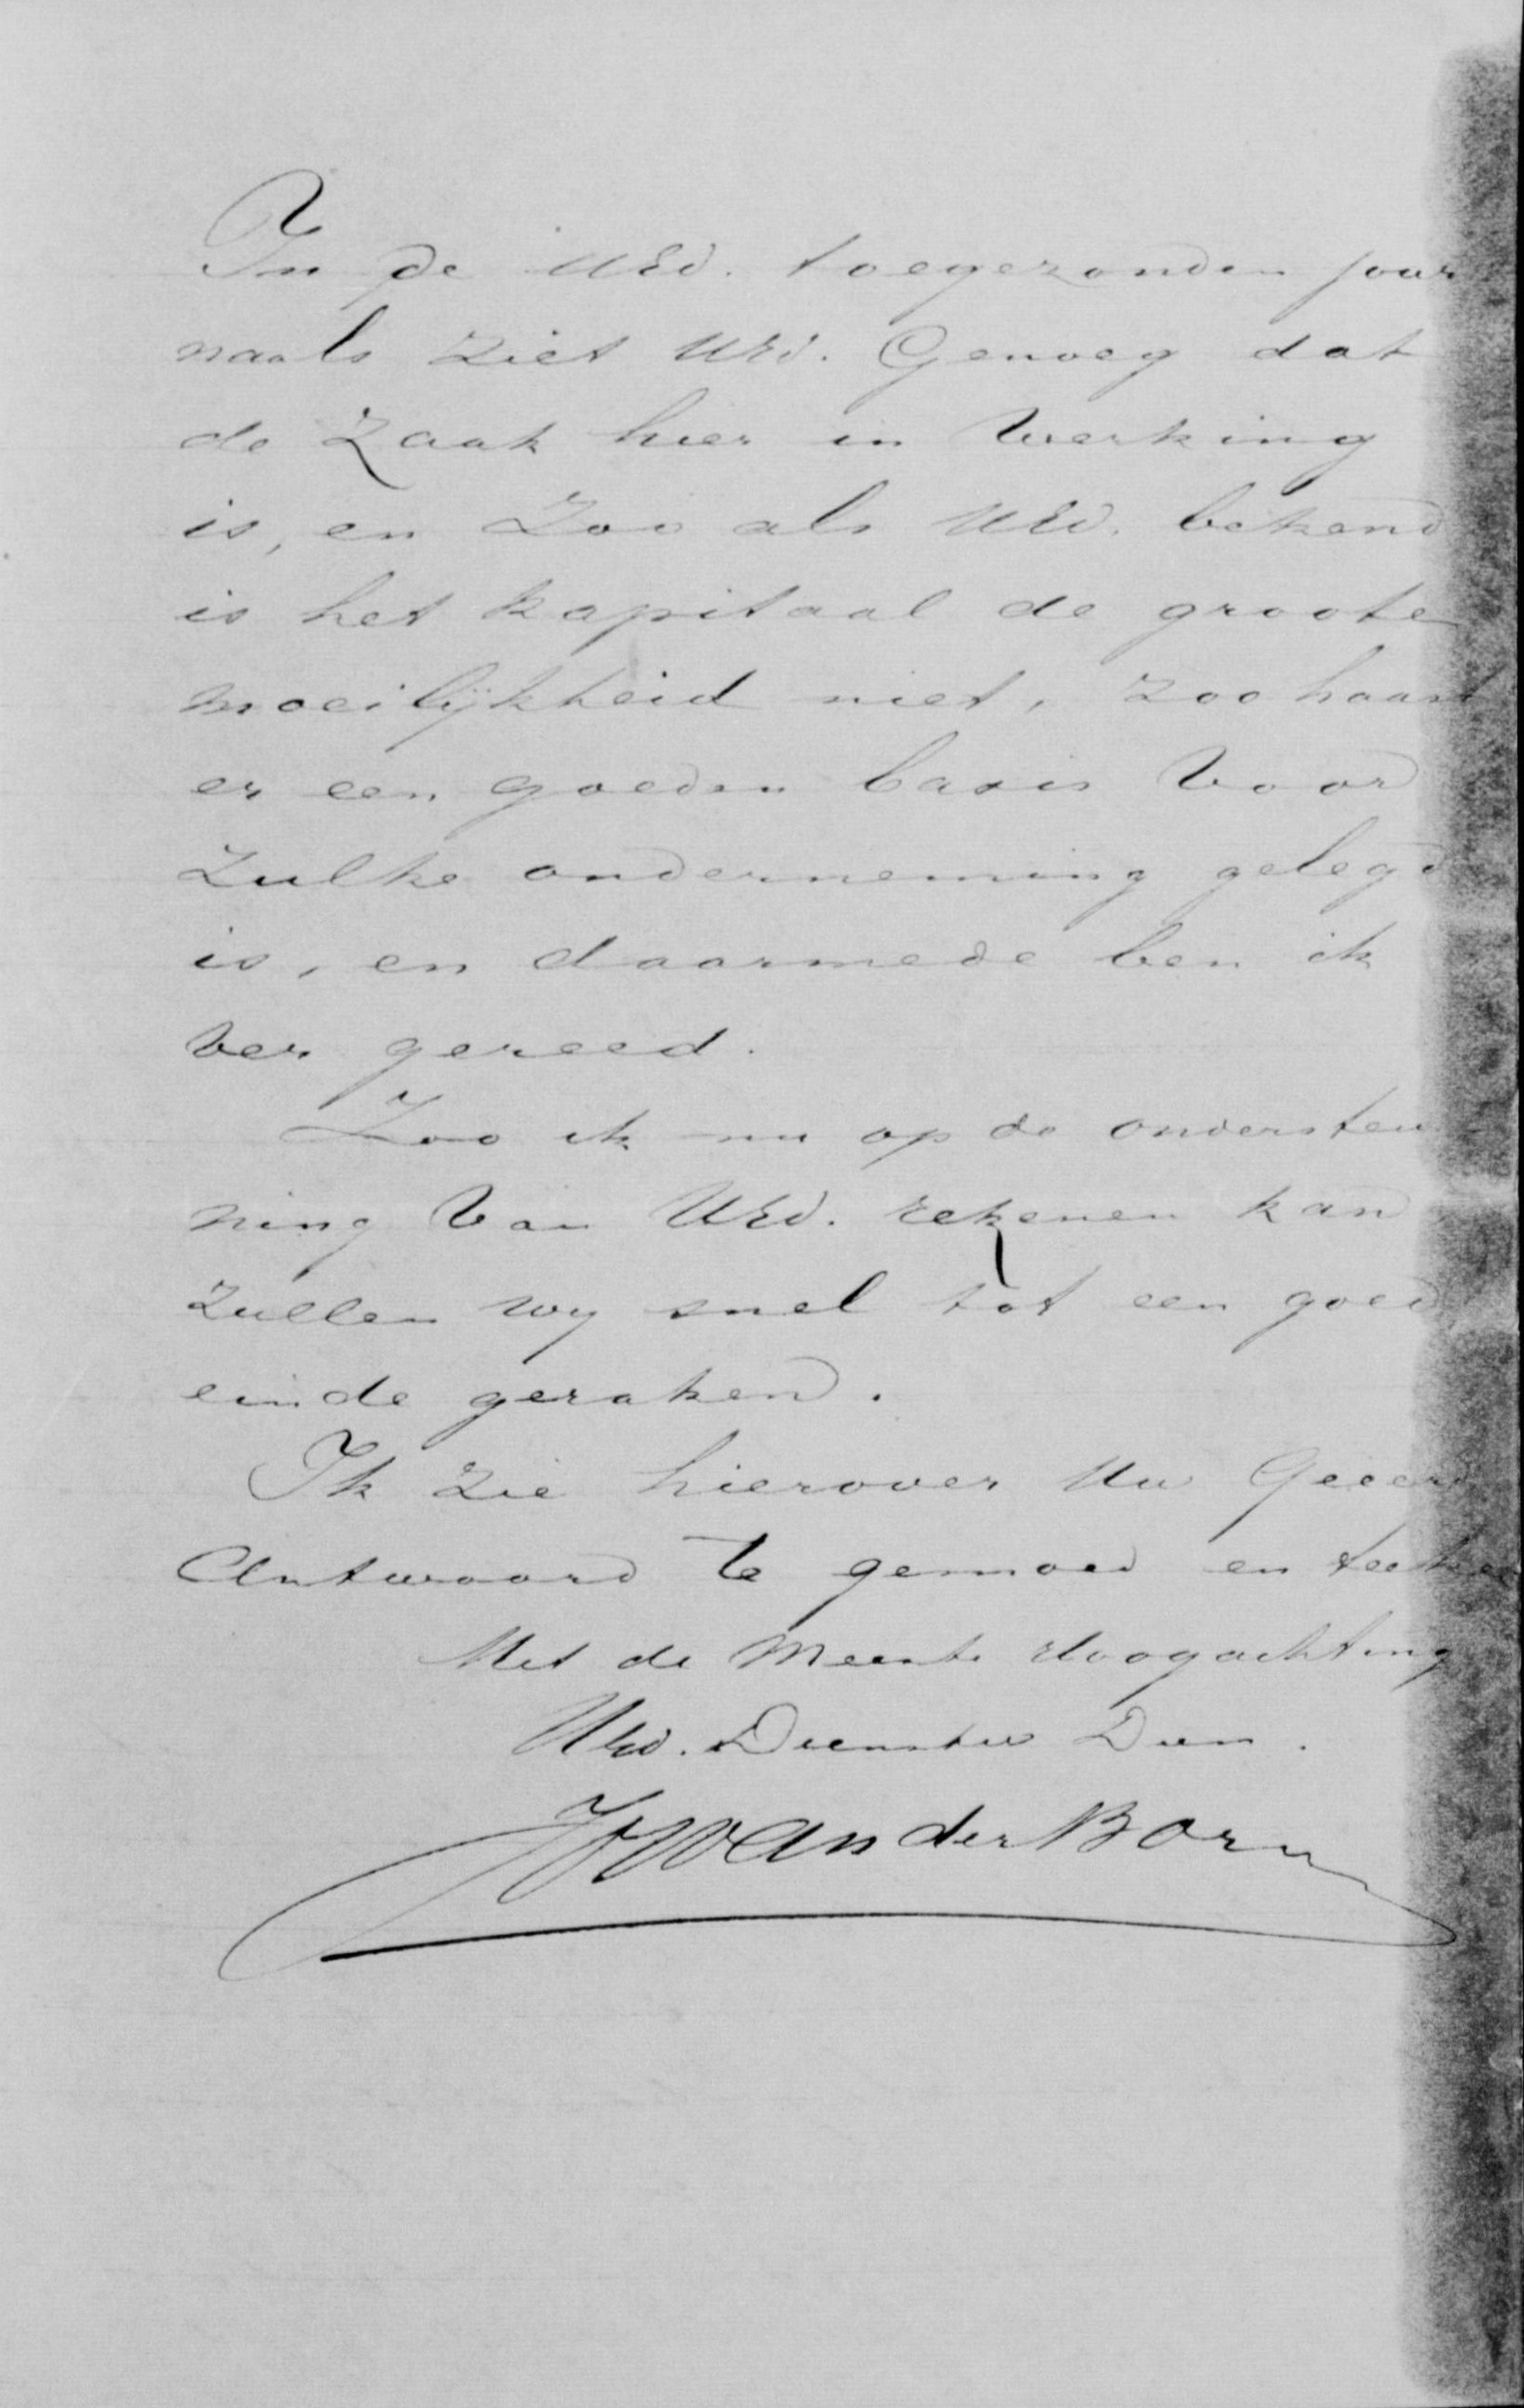 In de UEd. toegezonden jour
naals ziet UEd. Genoeg dat
de Zaak hier in Werking
is, en Zoo als UEd. bekend
is het kapitaal de groote
moeilijkheid niet, zoo haast
er een goeden basis Voor
Zulke onderneming gelegd
is, en daarmede ben ik
ver gereed.
Zoo ik nu op de ondersteu
ning Van UEd. rekenen kan,
Zullen wy snel tot een goed
einde geraken.
Ik Zie hierover Uw Geeerd
Antwoord te gemoed en teeken
Met de Meeste Hoogachting
UEd. Dienstw Dien.
van der Born